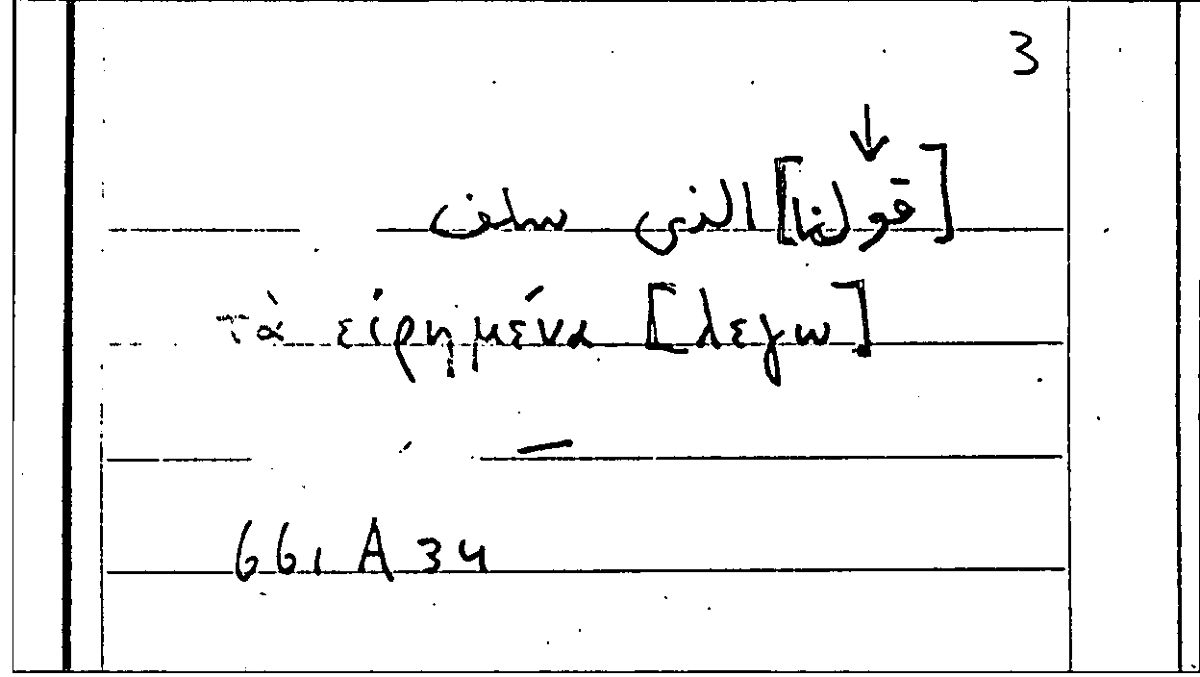 3
↓
[قولنا] الذي سلف
τὰ εἰρημένα [λεγω]
661 A 34